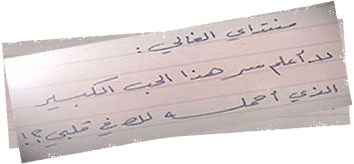 منتداي الغالي :
لا أعلم سر هذا الحب الكبير
الذي أحمله لك في قلبي ؟!